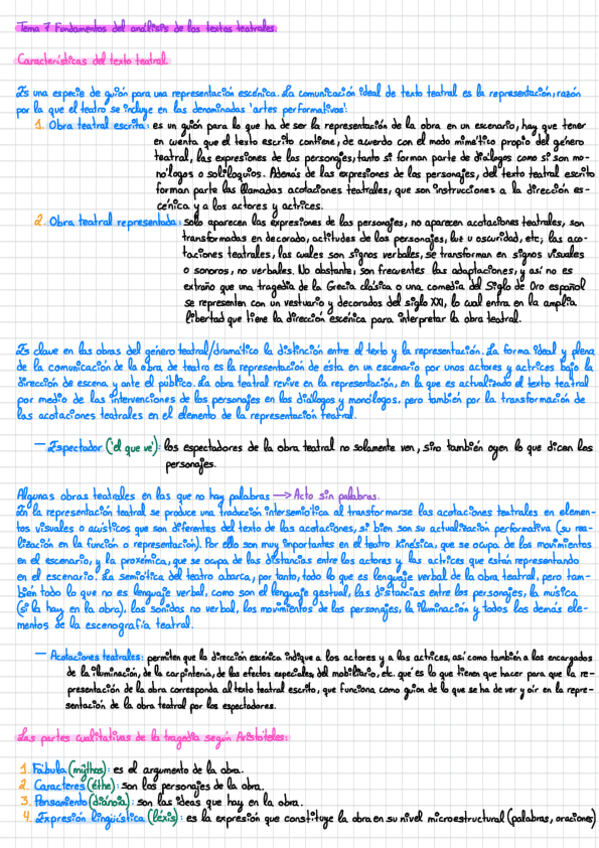 Tema 7 Fundamentos del análisis de los textos teatrales
Características del texto teatral
Es una especie de guión para una representación escénica. La comunicación ideal de texto teatral es la representación, razón
por la que el teatro se incluye en las denominadas 'artes performativas'.
1. Obra teatral escrita: es un guión para lo que ha de ser la representación de la obra en un escenario, hay que tener
en cuenta que el texto escrito contiene, de acuerdo con el modo mimético propio del género
teatral, las expresiones de los personajes, tanto si forman parte de diálogos como si son mo-
nólogos o soliloquios. Además de las expresiones de los personajes, del texto teatral escrito
forman parte las llamadas acotaciones teatrales, que son instrucciones a la dirección es-
cénica y a los actores y actrices.
2. Obra teatral representada: solo aparecen las expresiones de los personajes, no aparecen acotaciones teatrales, son
transformadas en decorado, actitudes de los personajes, luz u oscuridad, etc; las aco-
taciones teatrales, las cuales son signos verbales, se transforman en signos visuales
o sonoros, no verbales. No obstante, son frecuentes las adaptaciones, y así no es
extraño que una tragedia de la Grecia clásica o una comedia del Siglo de Oro español
se representen con un vestuario y decorados del siglo XXI, lo cual entra en la amplia
libertad que tiene la dirección escénica para interpretar la obra teatral.
Es clave en las obras del género teatral/dramático la distinción entre el texto y la representación. La forma ideal y plena
de la comunicación de la obra de teatro es la representación de ésta en un escenario por unos actores y actrices bajo la
dirección de escena y ante el público. La obra teatral revive en la representación, en la que es actualizado el texto teatral
por medio de las intervenciones de los personajes en los diálogos y monólogos, pero también por la transformación de
las acotaciones teatrales en el elemento de la representación teatral.
— Espectador ('el que ve'): los espectadores de la obra teatral no solamente ven, sino también oyen lo que dicen los
personajes.
Algunas obras teatrales en las que no hay palabras → Acto sin palabras.
En la representación teatral se produce una traducción intersemiótica al transformarse las acotaciones teatrales en elemen-
tos visuales o acústicos que son diferentes del texto de las acotaciones, si bien son su actualización performativa (su rea-
lización en la función o representación). Por ello son muy importantes en el teatro kinésica, que se ocupa de los movimientos
en el escenario, y la proxémica, que se ocupa de las distancias entre los actores y las actrices que están representando
en el escenario. La semiótica del teatro abarca, por tanto, todo lo que es lenguaje verbal de la obra teatral, pero tam-
bién todo lo que no es lenguaje verbal, como son el lenguaje gestual, las distancias entre los personajes, la música
(si la hay en la obra), los sonidos no verbal, los movimientos de los personajes, la iluminación y todos los demás ele-
mentos de la escenografía teatral.
— Acotaciones teatrales: permiten que la dirección escénica indique a los actores y a las actrices, así como también a los encargados
de la iluminación, de la carpintería, de los efectos especiales, del mobiliario, etc. qué es lo que tienen que hacer para que la re-
presentación de la obra corresponda al texto teatral escrito, que funciona como guion de lo que se ha de ver y oír en la repre-
sentación de la obra teatral por los espectadores.
Las partes cualitativas de la tragedia según Aristóteles:
1. Fábula (mŷthos): es el argumento de la obra.
2. Caracteres (éthe): son los personajes de la obra.
3. Pensamiento (diánoia): son las ideas que hay en la obra.
4. Expresión lingüística (léxis): es la expresión que constituye la obra en su nivel microestructural (palabras, oraciones)